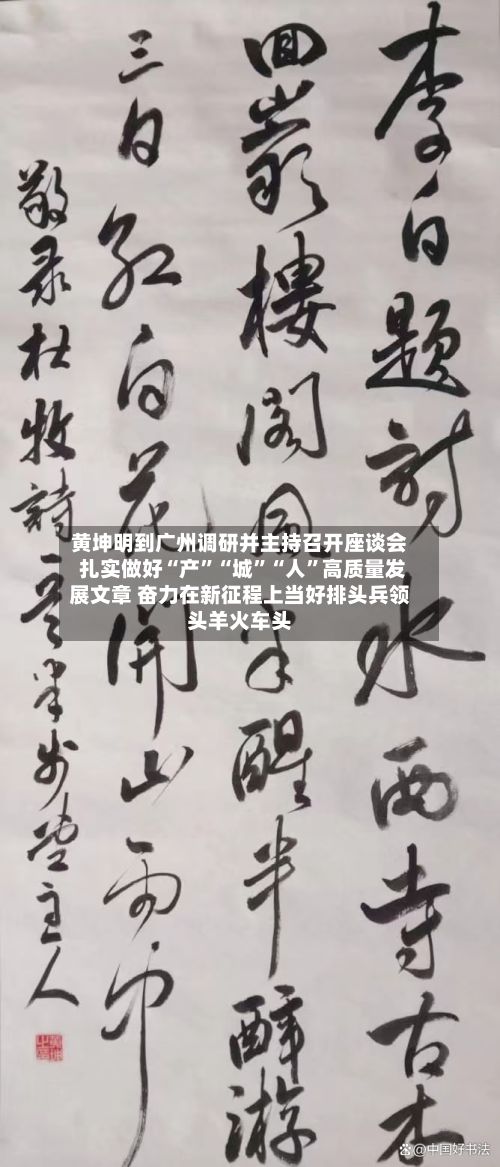 李白题诗水西寺古木
回岩楼阁风半醒半醉游
三日红白花开山雨中
敬录杜牧诗一首
主人
黄坤明到广州调研并主持召开座谈会
扎实做好“产”“城”“人”高质量发
展文章 奋力在新征程上当好排头兵领
头羊火车头
@中国好书法